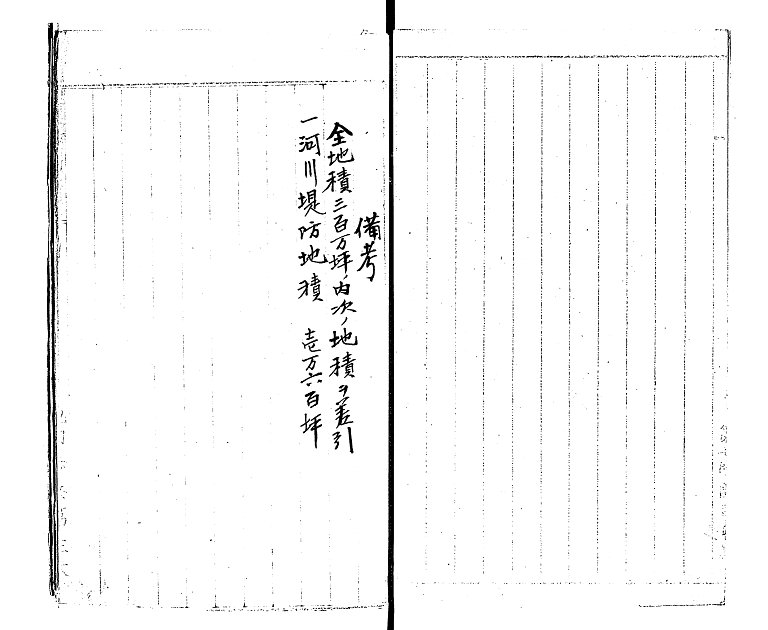 備考
全地積三百万坪ノ内次ノ地積ヲ差引
一河川堤防地積　壱万六百坪